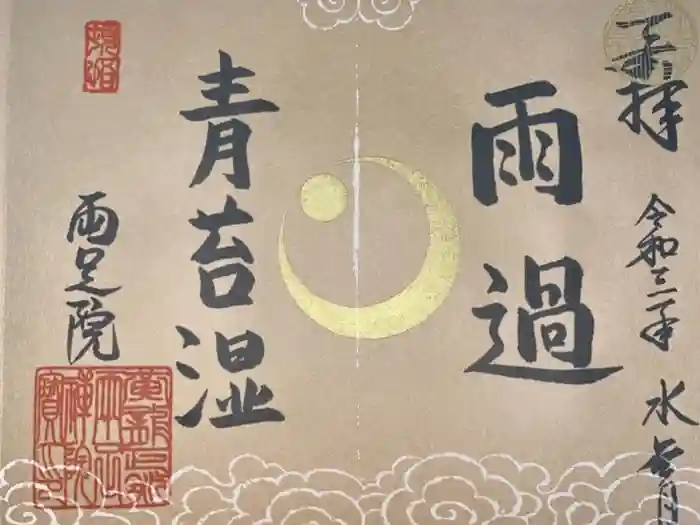 奉拝
令和三年 水無月
雨過
青苔湿
両足院